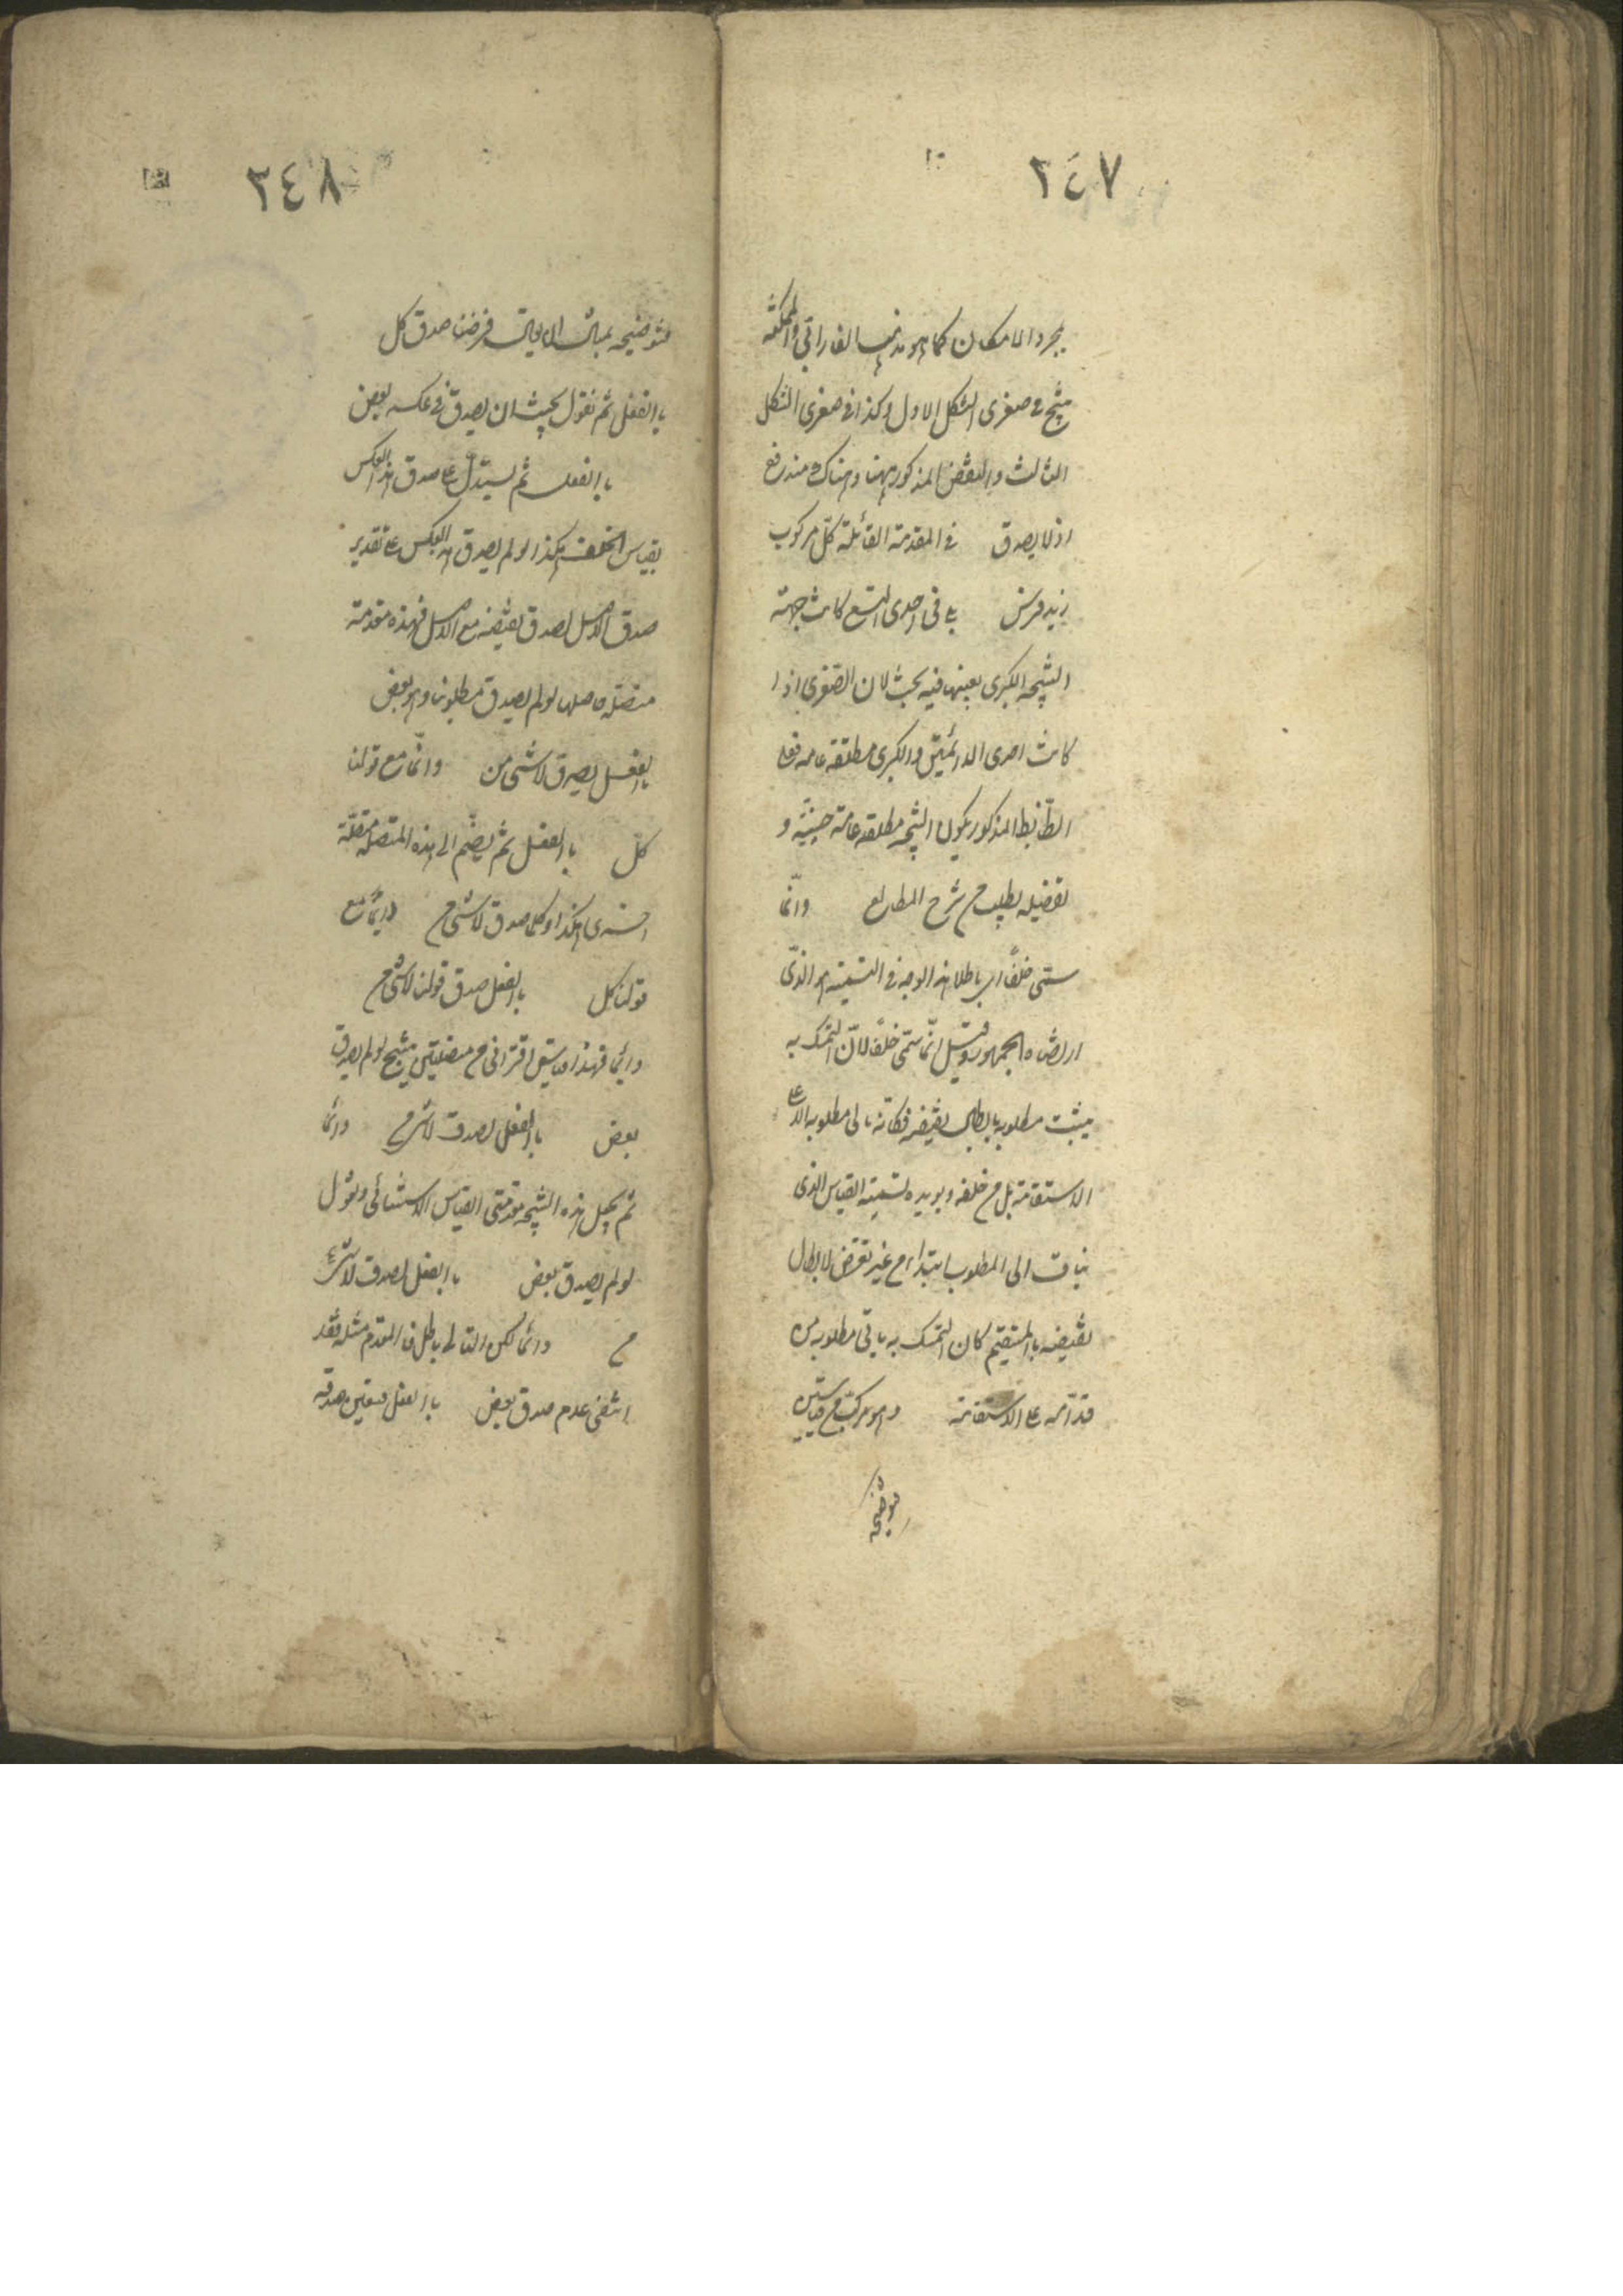 ٢٤٧
بمجرد الامكان كما هو مذهب الفارابي والممكنة
ينتج في صغرى الشكل الاول وكذا في صغرى الشكل
الثالث والنقض المذكور ههنا وهناك مندفع
اذ لا يصدق في المقدمة القائلة كل مركوب
زيد فرس باقي احدى التسع كانت جهة
النتيجة الكبرى بعينها فيه بحث لان الصغرى اذا
كانت احدى الدائمتين والكبرى مطلقة عامة فعلى
الضابط المذكور يكون النتيجة مطلقة عامة حينية و
تفصيله يطلب من شرح المطالع وانما
سمى خلفا اى باطلا هذا الوجه في التسمية هو الذى
ارتضاه الجمهور وقيل انما سمى خلفا لان المتمسك به
يثبت مطلوبه بابطال نقيضه فكانه ياتى مطلوبه لا على
الاستقامة بل من خلفه ويؤيده تسمية القياس الذى
ينساق الى المطلوب ابتداء من غير تعرض لابطال
نقيضه بالمستقيم كان المتمسك به ياتى مطلوبه من
قدامه على الاستقامة وهو مركب من قياسين
توضيحه
٢٤٨
توضيحه بمثال فرضنا صدق كل
بالفعل ثم نقول يجب ان يصدق في عكسه بعض
بالفعل ثم يستدل على صدق هذا العكس
بقياس الخلف هكذا لو لم يصدق هذا العكس على تقدير
صدق الاصل لصدق نقيضه مع الاصل فهذه مقدمة
متصلة حاصلها لو لم يصدق مطلوبنا وهو بعض
بالفعل يصدق لا شئ من دائما مع قولنا
كل بالفعل ثم يضم الى هذه المتصلة متصلة
اخرى هكذا وكلما صدق لا شئ من دائما مع
قولنا كل بالفعل صدق قولنا لا شئ من
دائما فهذا قياس اقترانى من متصلتين ينتج لو لم يصدق
بعض بالفعل لصدق لا شئ من دائما
ثم يجعل هذه النتيجة مقدمتى القياس الاستثنائى ونقول
لو لم يصدق بعض بالفعل لصدق لا شئ
من دائما لكن التالى باطل فالمقدم مثله فقد
انتفى عدم صدق بعض بالفعل فتعين صدقه